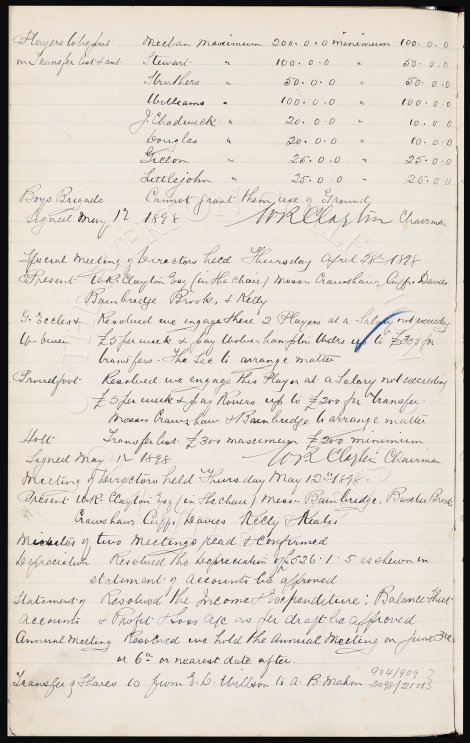 Players to be put Meehan maximum 200.0.0 minimum 100.0.0
on Transfer list & amt Stewart " 100.0.0 " 50.0.0
Struthers " 50.0.0 " 50.0.0
Williams " 100.0.0 " 100.0.0
J. Chadwick " 20.0.0 " 10.0.0
Douglas " 20.0.0 " 10.0.0
Gillon " 25.0.0 " 25.0.0
Littlejohn " 25.0.0 " 25.0.0
Boys Brigade Cannot grant them use of Ground
Signed May 12 1898 W R Clayton Chairman
Special Meeting of Directors held Thursday April 28th 1898
Present W.R. Clayton Esq (in the chair) Messrs Crawshaw, Cuffs, Davies
Bainbridge Brook, & Kelly
G. Eccles & Resolved we engage these 2 Players at a Salary not exceeding
W. Owen £5 per week & pay Wolverhampton Wdrs up to £350 for
transfers. The Sec to arrange matter
Proudfoot Resolved we engage this Player at a Salary not exceeding
£5 per week & pay Rovers up to £200 for Transfer
Messrs Crawshaw & Bainbridge to arrange matter
Holt Transfer list £300 maximum £200 minimum
Signed May 12 1898 W R Clayton Chairman
Meeting of Directors held Thursday May 12th 1898.
Present W.R. Clayton Esq (in the chair) Messrs Bainbridge. Baxter Brook
Crawshaw, Cuffs, Davies Kelly & Keates
Minutes of two Meetings read & confirmed
Depreciation Resolved the Depreciation of £526.1.5 as shewn in
statement of accounts be approved
Statement of Resolved the Income & Expenditure; Balance Sheet
accounts & Profit & Loss a/c as per draft be approved
Annual Meeting Resolved we hold the Annual Meeting on June
or 6th or nearest date after.
Transfer of Shares 10 from E. D. Willson to A. B. Mahon 904/909
2098/2101